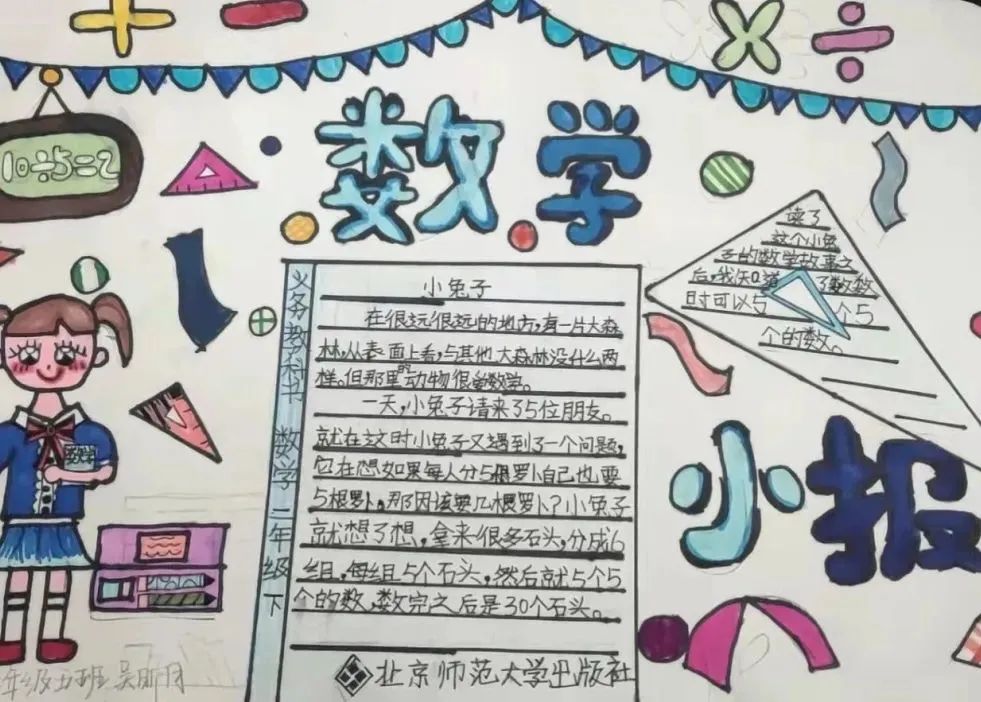 数学
10÷5=2
小兔子
在很远很远的地方,有一片大森
林,从表面上看,与其他大森林没什么两
样。但那里的动物很爱数学。
一天,小兔子请来了5位朋友。
就在这时小兔子又遇到了一个问题,
它在想如果每人分5根罗卜自己也要
5根罗卜,那因该要几根罗卜?小兔子
就想了想,拿来很多石头,分成6
组,每组5个石头,然后就5个5
个的数,数完之后是30个石头。
北京师范大学出版社
义务教科书 数学二年级下
读了
这个小兔
子的数学故事之
后,我知道了数数
时可以5个5
个的数。
小报
数学
年级五班 吴